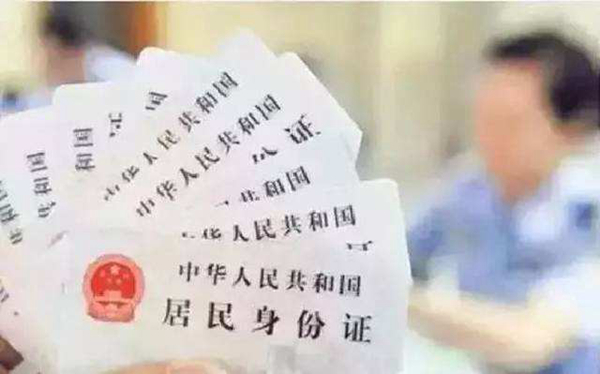 中华人民共和国
和国
中华人民共和国
证
和国
华人民共和国
中华人民共和国
居民身份证